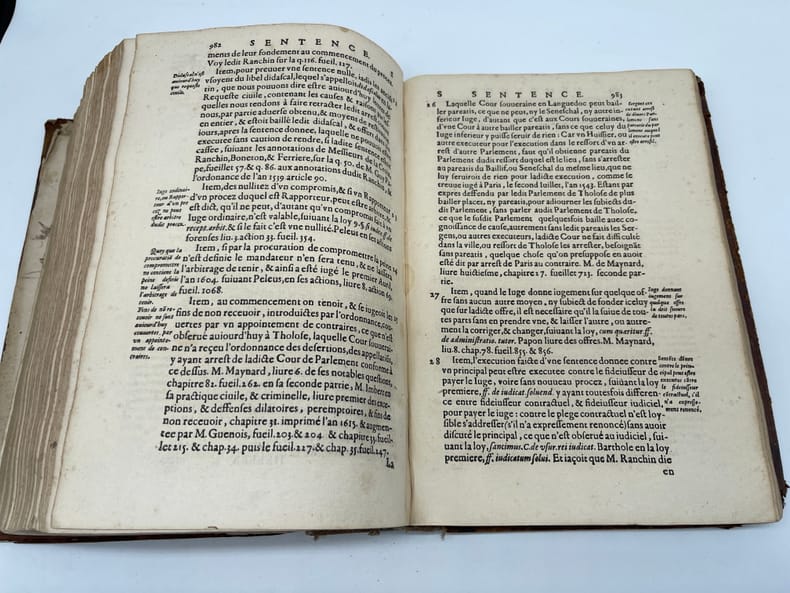 982 SENTENCE.
ments de leur fondement au commencement du procez,
Voy ledit Ranchin sur la q. 116. fueil. 127.
Item, pour preuuer vne sentence nulle, iadis les anciés
vsoyent du libel didascal, lequel s'appelloit didascal en la-
tin, que nous pouuons dire estre auiourd'huy la
Requeste ciuile, contenant les causes & raisons
quelles nous tendons à faire retracter ledit arrest
nous, par partie aduerse obtenu, & moyens
en entier, & estoit baillé ledit didascal, & offert
iours, apres la sentence donnee, laquelle ne pouuoit
executee sans caution de rendre, si ladite sentence
cassee, suiuant les annotations de Messieurs de
Ranchin, Boneton, & Ferriere, sur la q. 50. de M. Guy Pa-
pe, fueillet 57. & q. 86. aux annotations dudit Ranchin, &
l'ordonnance de l'an 1539. article 90.
Item, des nullitez d'vn compromis, & si vn Rapporteur
d'vn procez duquel est Rapporteur, peut estre
est dict, qu'il ne peut, d'autant qu'vn compromis
Iuge ordinaire, n'est valable, suiuant la loy 9. §. si
recept. arbit. & si le fait c'est vne nullité. Peleus en ses actions
forenses liu. 3. action 33. fueil. 354.
Item, si par la procuration de compromettre la peine
n'est definie le mandateur n'en sera tenu, & ne laissera
l'arbitrage de tenir, & ainsi a esté iugé le premier
l'an 1604. suiuant Peleus, en ses actions, liure 8. action 69.
fueil. 1068.
Item, au commencement on tenoit, & se iugeoit
fins de non receuoir, introductes par l'ordonnance, cou-
uertes par vn appointement de contraires, ce que n'est
obserué auiourd'huy à Tholose, laquelle Cour souuerai-
ne n'a receu l'ordonnance des desertions, des appellatiõs,
y ayant arrest de ladicte Cour de Parlement conforme à
ce dessus. M. Maynard, liure 6. de ses notables questions,
chapitre 82. fueil. 262. en sa seconde partie, M. Imbert en
sa practique ciuile, & criminelle, liure premier des exce-
ptions, & deffenses dilatoires, peremptoires, & fins de
non receuoir, chapitre 31. imprimé l'an 1615. & augmen-
tee par M. Guenois, fueil. 203. & 204. & chapitre 33. fueil-
let 215. & chap. 34. puis le fueil. 227. & chap. 35. fueil. 247.
La
Didascal n'est
auiourd'huy
que requeste
ciuile.
Iuge ordinai-
re, ou Rappor-
teur d'vn pro-
cez ne peut
estre arbitre
dudit procez.
Quoy que la
procuratiõ de
compromettre
ne contienne la
peine definie
ne laissera
l'arbitrage de
tenir.
Fins de nõ re-
ceuoir ne sont
auiourd'huy
couuertes par
vn appointe-
ment de con-
traires.
S SENTENCE. 983
26 Laquelle Cour souueraine en Languedoc peut bail-
ler pareatis, ce que ne peut, ny le Seneschal, ny autre in-
ferieur Iuge, d'autant que c'est aux Cours souueraines,
d'vne Cour à autre bailler pareatis, sans ce que celuy du
Iuge inferieur y puisse seruir de rien: Car vn Huissier, ou
autre executeur pour l'execution dans le ressort d'vn ar-
rest d'autre Parlement, faut qu'il obtienne pareatis du
Parlement dudit ressort duquel est le lieu, sans s'arrester
au pareatis du Baillif, ou Seneschal du mesme lieu, que ne
luy seruirois de rien pour ladicte execution, comme se
treuue iugé à Paris, le second Iuillet, l'an 1543. Estant par
expres deffendu par ledit Parlement de Tholose de plus
bailler places, ny pareatis, pour adiourner les subiects du-
dict Parlement, sans parler audit Parlement de Tholose,
ce que le susdit Parlement quelquesfois baille auec co-
gnoissance de cause, autrement sans ledit pareatis les Ser-
gens, ou autres executeurs, ladicte Cour ne fait difficulté
dans la ville, ou ressort de Tholose les arrester, besoignãs
sans pareatis, quelque chose qu'on presuppose en auoir
esté dit par arrest de Paris au contraire. M. de Maynard,
liure huictiesme, chapitre 17. fueillet 713. seconde par-
tie.
27 Item, quand le Iuge donne iugement sur quelque of-
fre sans aucun autre moyen, ny subiect de fonder iceluy
que sur ladicte offre, il est necessaire qu'il la suiue de tou-
tes parts sans en prendre vne, & laisser l'autre, ou autre-
ment la corriger, & changer, suiuant la loy, cum quæritur ff.
de administrat. tutor. Papon liure des offres. M. Maynard,
liu. 8. chap. 78. fueil. 855. & 856.
28 Item, l'execution faite d'vne sentence donnee contre
vn principal peut estre executee contre le fideiusseur de
payer le Iuge, voire sans nouueau procez, suiuant la loy
premiere, ff. de indicat. soluend. y ayant toutesfois differen-
ce entre fideiusseur contractuel, & fideiusseur iudiciel,
pour payer le iuge: contre le plege contractuel n'est loy-
sible s'addresser (s'il n'a expressement renoncé) sans auoir
discuté le principal, ce que n'est obserué au iudiciel, sui-
uant la loy, sancimus. C. de vsur. rei iudicat. Barthole en la loy
premiere, ff. indicatum solui. Et iaçoit que M. Ranchin die
en
Iuge donnant
iugement sur
quelque offre
la doit suiure
de toutes parts.
Sentéce dõnee
contre le prin-
cipal peut estre
executee côtre
le fideiusseur
cõtractuel, s'il
n'a expresse-
ment renoncé.